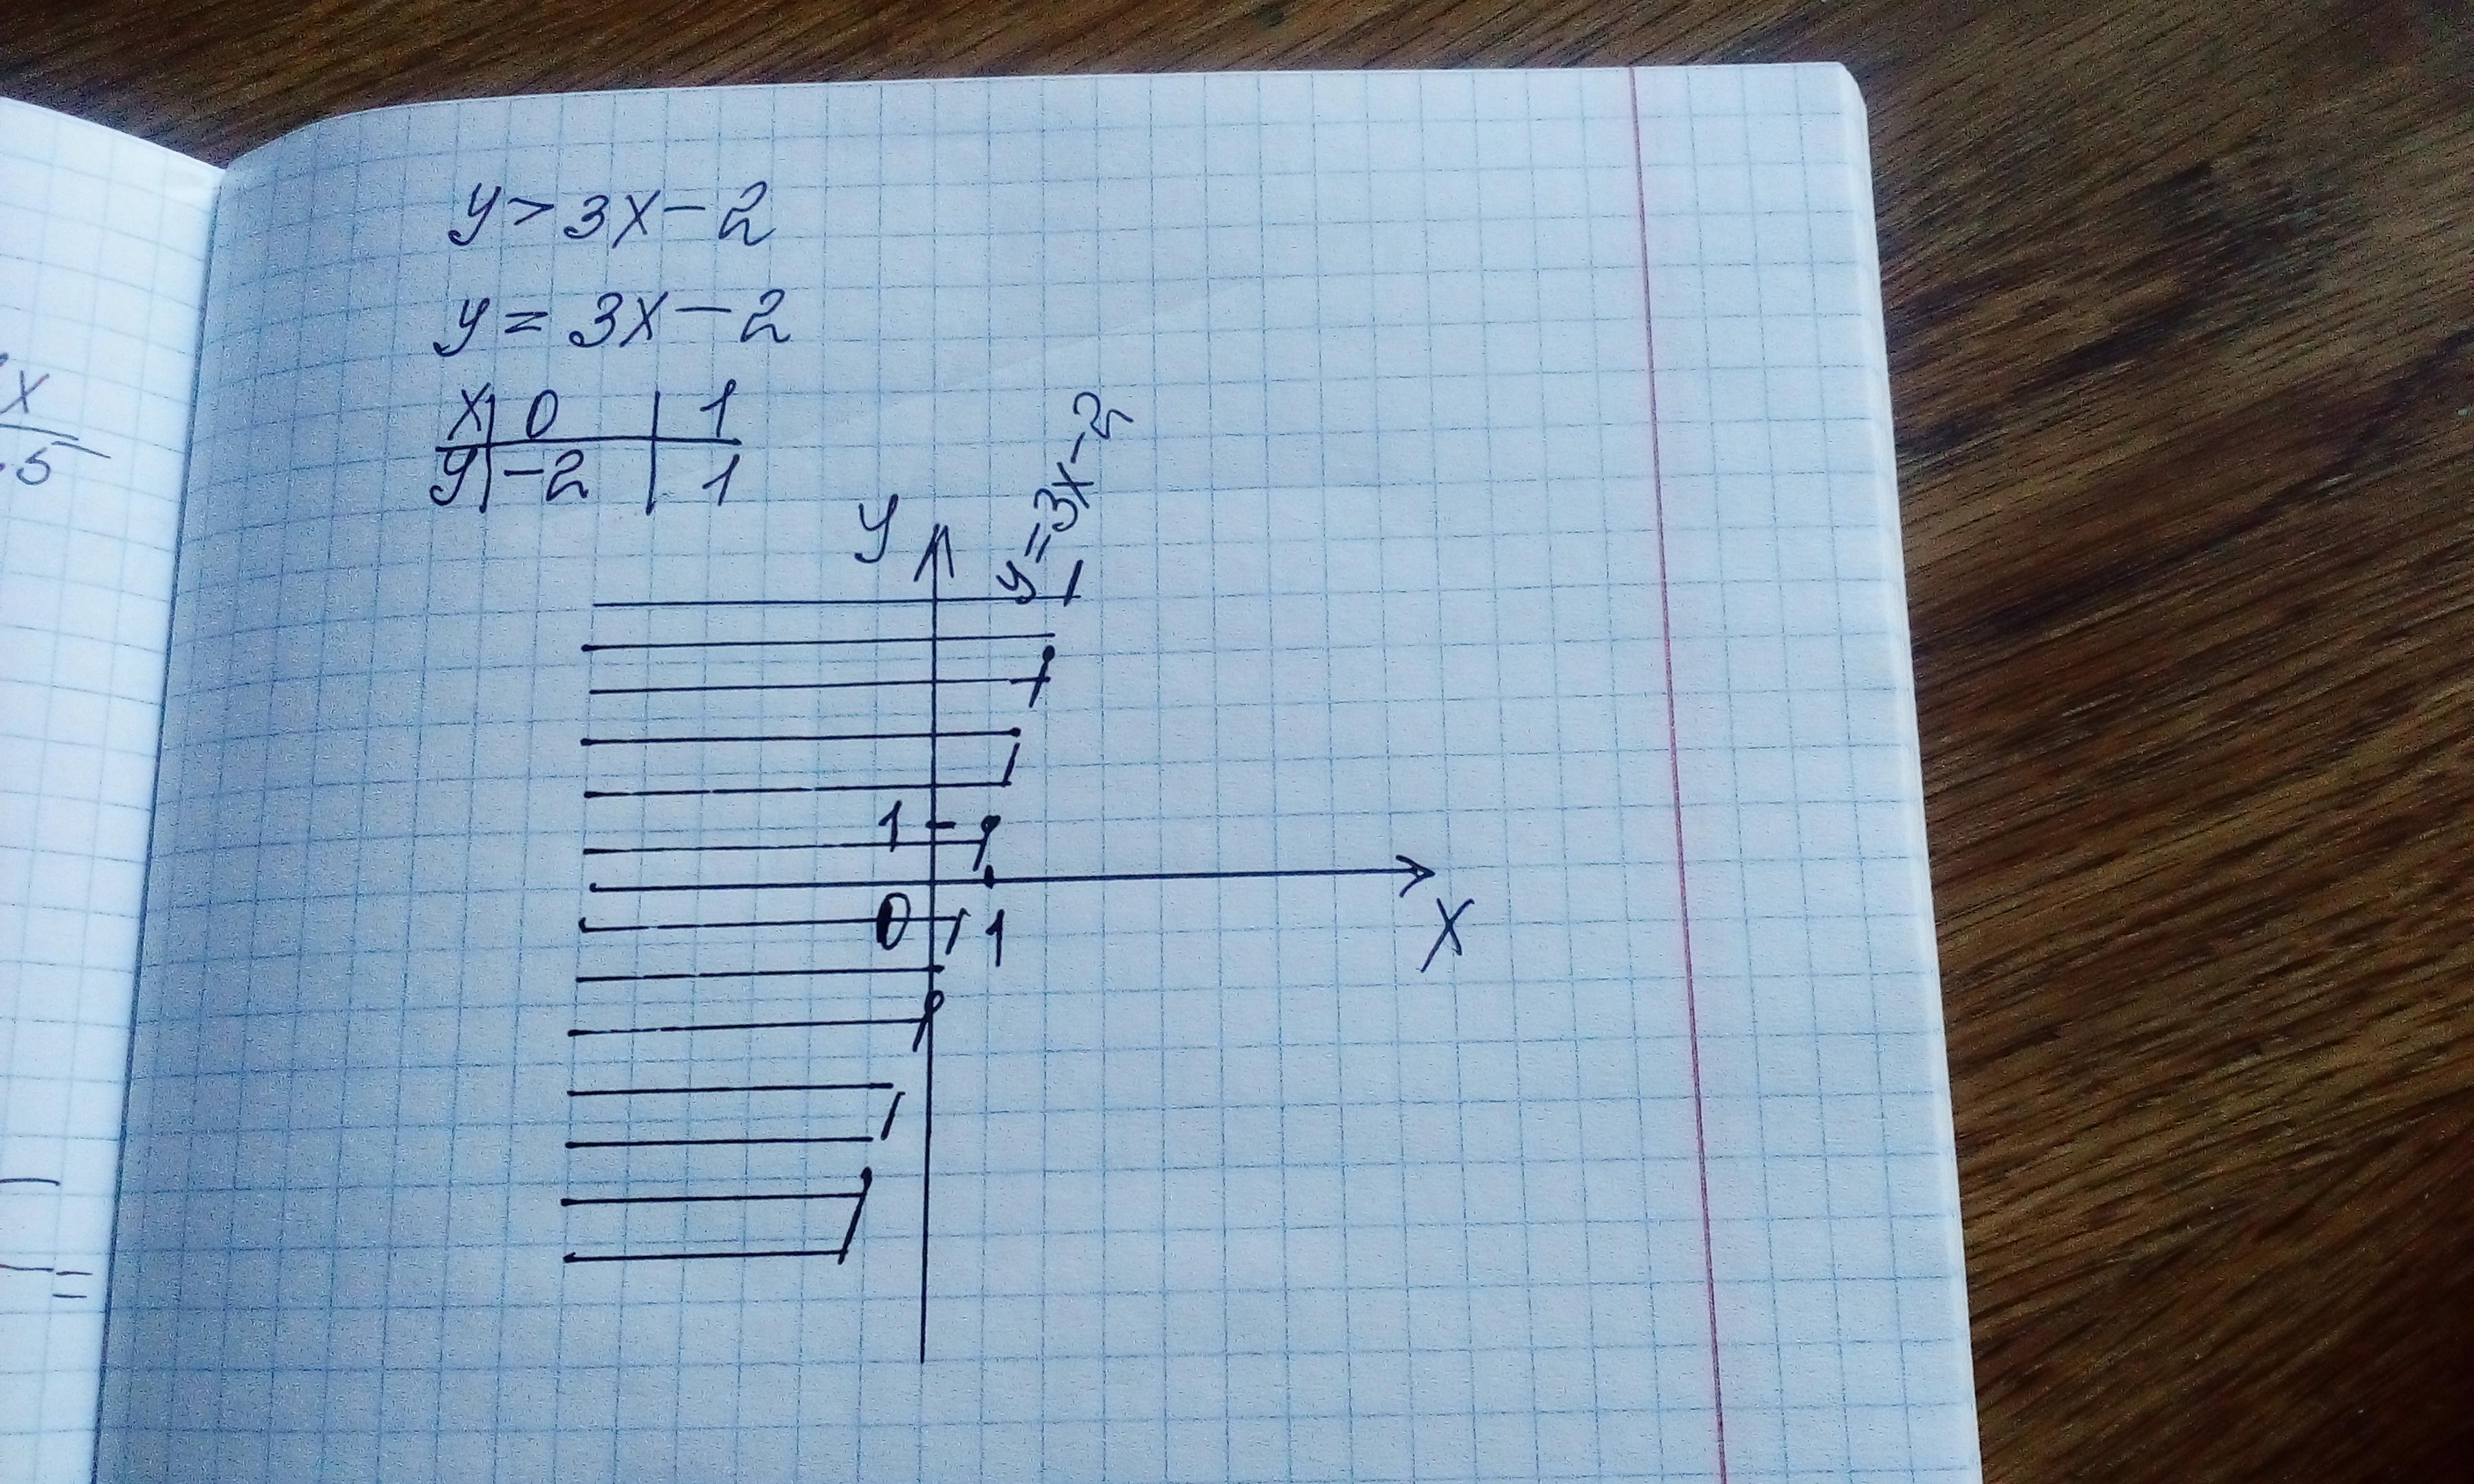 y > 3x - 2
y = 3x - 2
x | 0 | 1
y | -2 | 1
y = 3x - 2
y
1
0 1
x
x
5
=